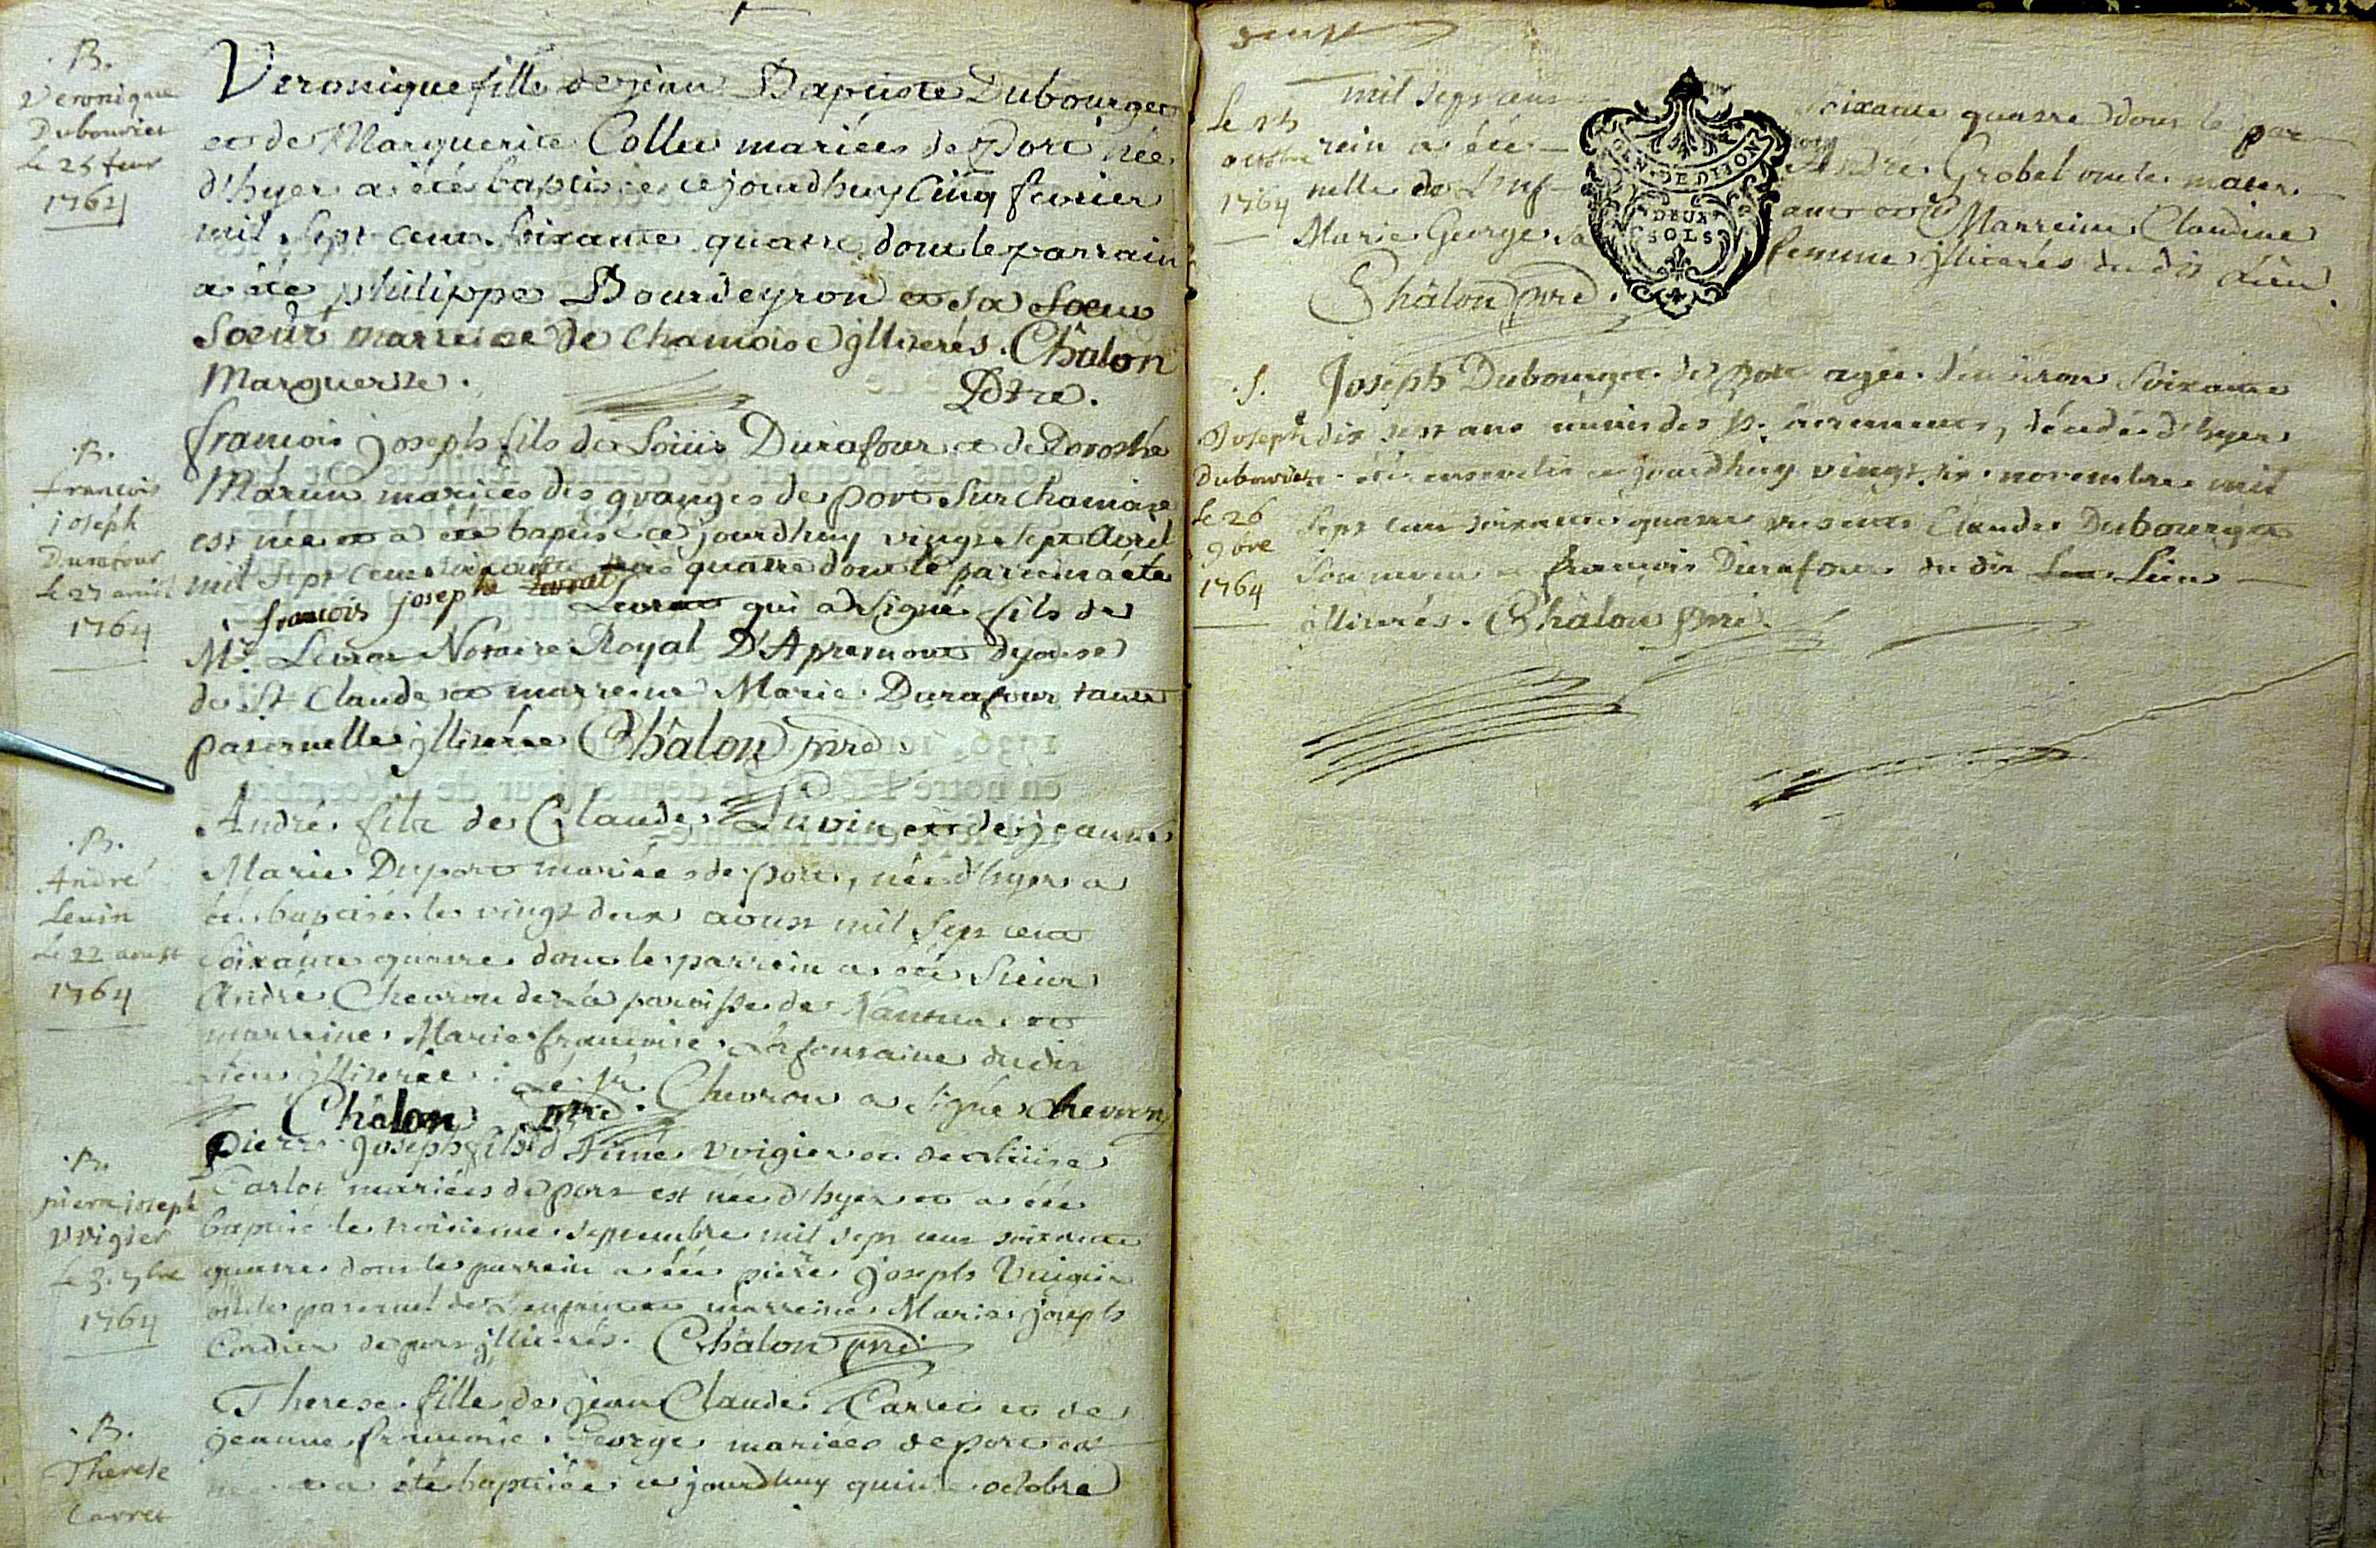 .B.
Veronique
Dubouriet
le 25 feur
1764
Veronique fille de jean Baptiste Dubourget
et de Marguerite Collet mariées de Port née
d'hyer a été baptisée ce jourdhuy cinq fevrier
mil sept cent soixante quatre dont le parrain
a été philippe Bourdeyron et sa soeur
soeur marreine de Chamoise jlliterés. Châlon
Marguerite. Pbtre.
.B.
françois
joseph
Durafour
le 27 avril
1764
françois joseph fils de Loüis Durafour et de Dorothé
Martin mariées des granges de port sur Chamoise
est née et a été baptisé ce jourdhuy vingt sept Avril
mil sept cent soixante quatre dont le parrein a été
françois joseph
qui a signé fils de
Mr. Levrat Notaire Royal D'Apremont dyocese
de St Claude et marreine Marie Durafour tante
paternelle jlliterée Châlon ptre.
.B.
André
Levin
Le 22 aoust
1764
André fils de Claude Luvin et de jeanne
Marie Duport mariées de port, née d'hyer a
été baptisé le vingt deux aoust mil sept cent
soixante quatre dont le parrein a été sieur
André Chevron de la paroisse de Nantua et
marreine Marie françoise Lafontaine dudit
Lieu jlliterée. Le sr. Chevron a signé chevron
Châlon ptre.
.B.
pierre joseph
vvigier
Le 3. 7bre
1764
pierre joseph fils d'Aimé vvigier et de
Carlot mariées de port est née d'hyer et a été
baptisé le troisieme septembre mil sept cent soixante
quatre dont le parrein a été pierre joseph Vuigier
oncle paternel de L'enfant et marreine Marie joseph
Cordier de port jlliterés. Châlon ptre.
.B.
Therese
Carret
Therese fille de jean Claude Carret et de
jeanne françoise George mariées de port est
née et a été baptisée ce jourdhuy quinze octobre
Le 15
octobre
1764
mil sept cent soixante quatre dont le par
rein a été André Grobel oncle mater
nelle de L'enfant et Marreine Claudine
Marie George sa femme jlliterés du dit Lieu.
GEN. DE DIJON
DEUX
SOLS
Châlon ptre.
.S.
Joseph
Dubouriet
Le 26
9bre
1764
Joseph Dubourget de port agée d'environ soixante
dix sept ans munis des St. sacrements, décedée d'hyer
a été ensevelis ce jourdhuy vingt six novembre mil
sept cent soixante quatre presents Claude Dubourget
son neveu et françois Durafour du dit Lieu
jlliterés. Châlon ptre.